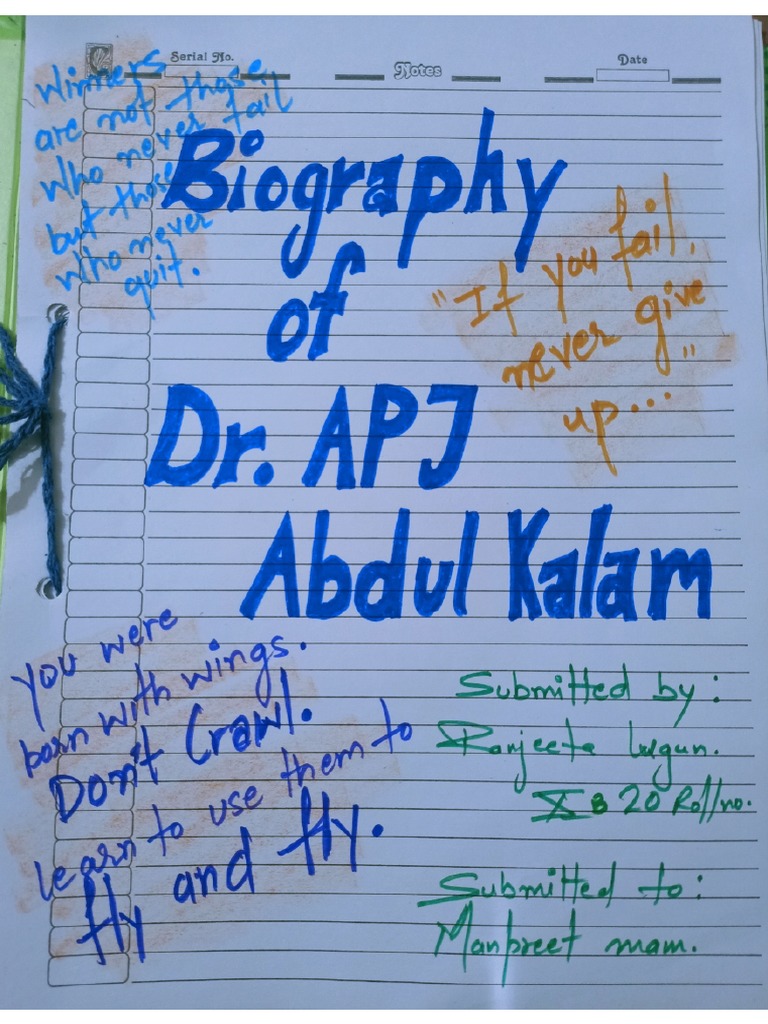 Serial No.
Notes
Date
Winners
are not those
who never fail
but those
who never
quit.
Biography
of
Dr. APJ
Abdul Kalam
"If you fail,
never give
up..."
you were
born with wings.
Don't Crawl.
learn to use them to
fly and fly.
Submitted by:
Ranjeeta lugun.
X B 20 Roll no.
Submitted to:
Manpreet mam.